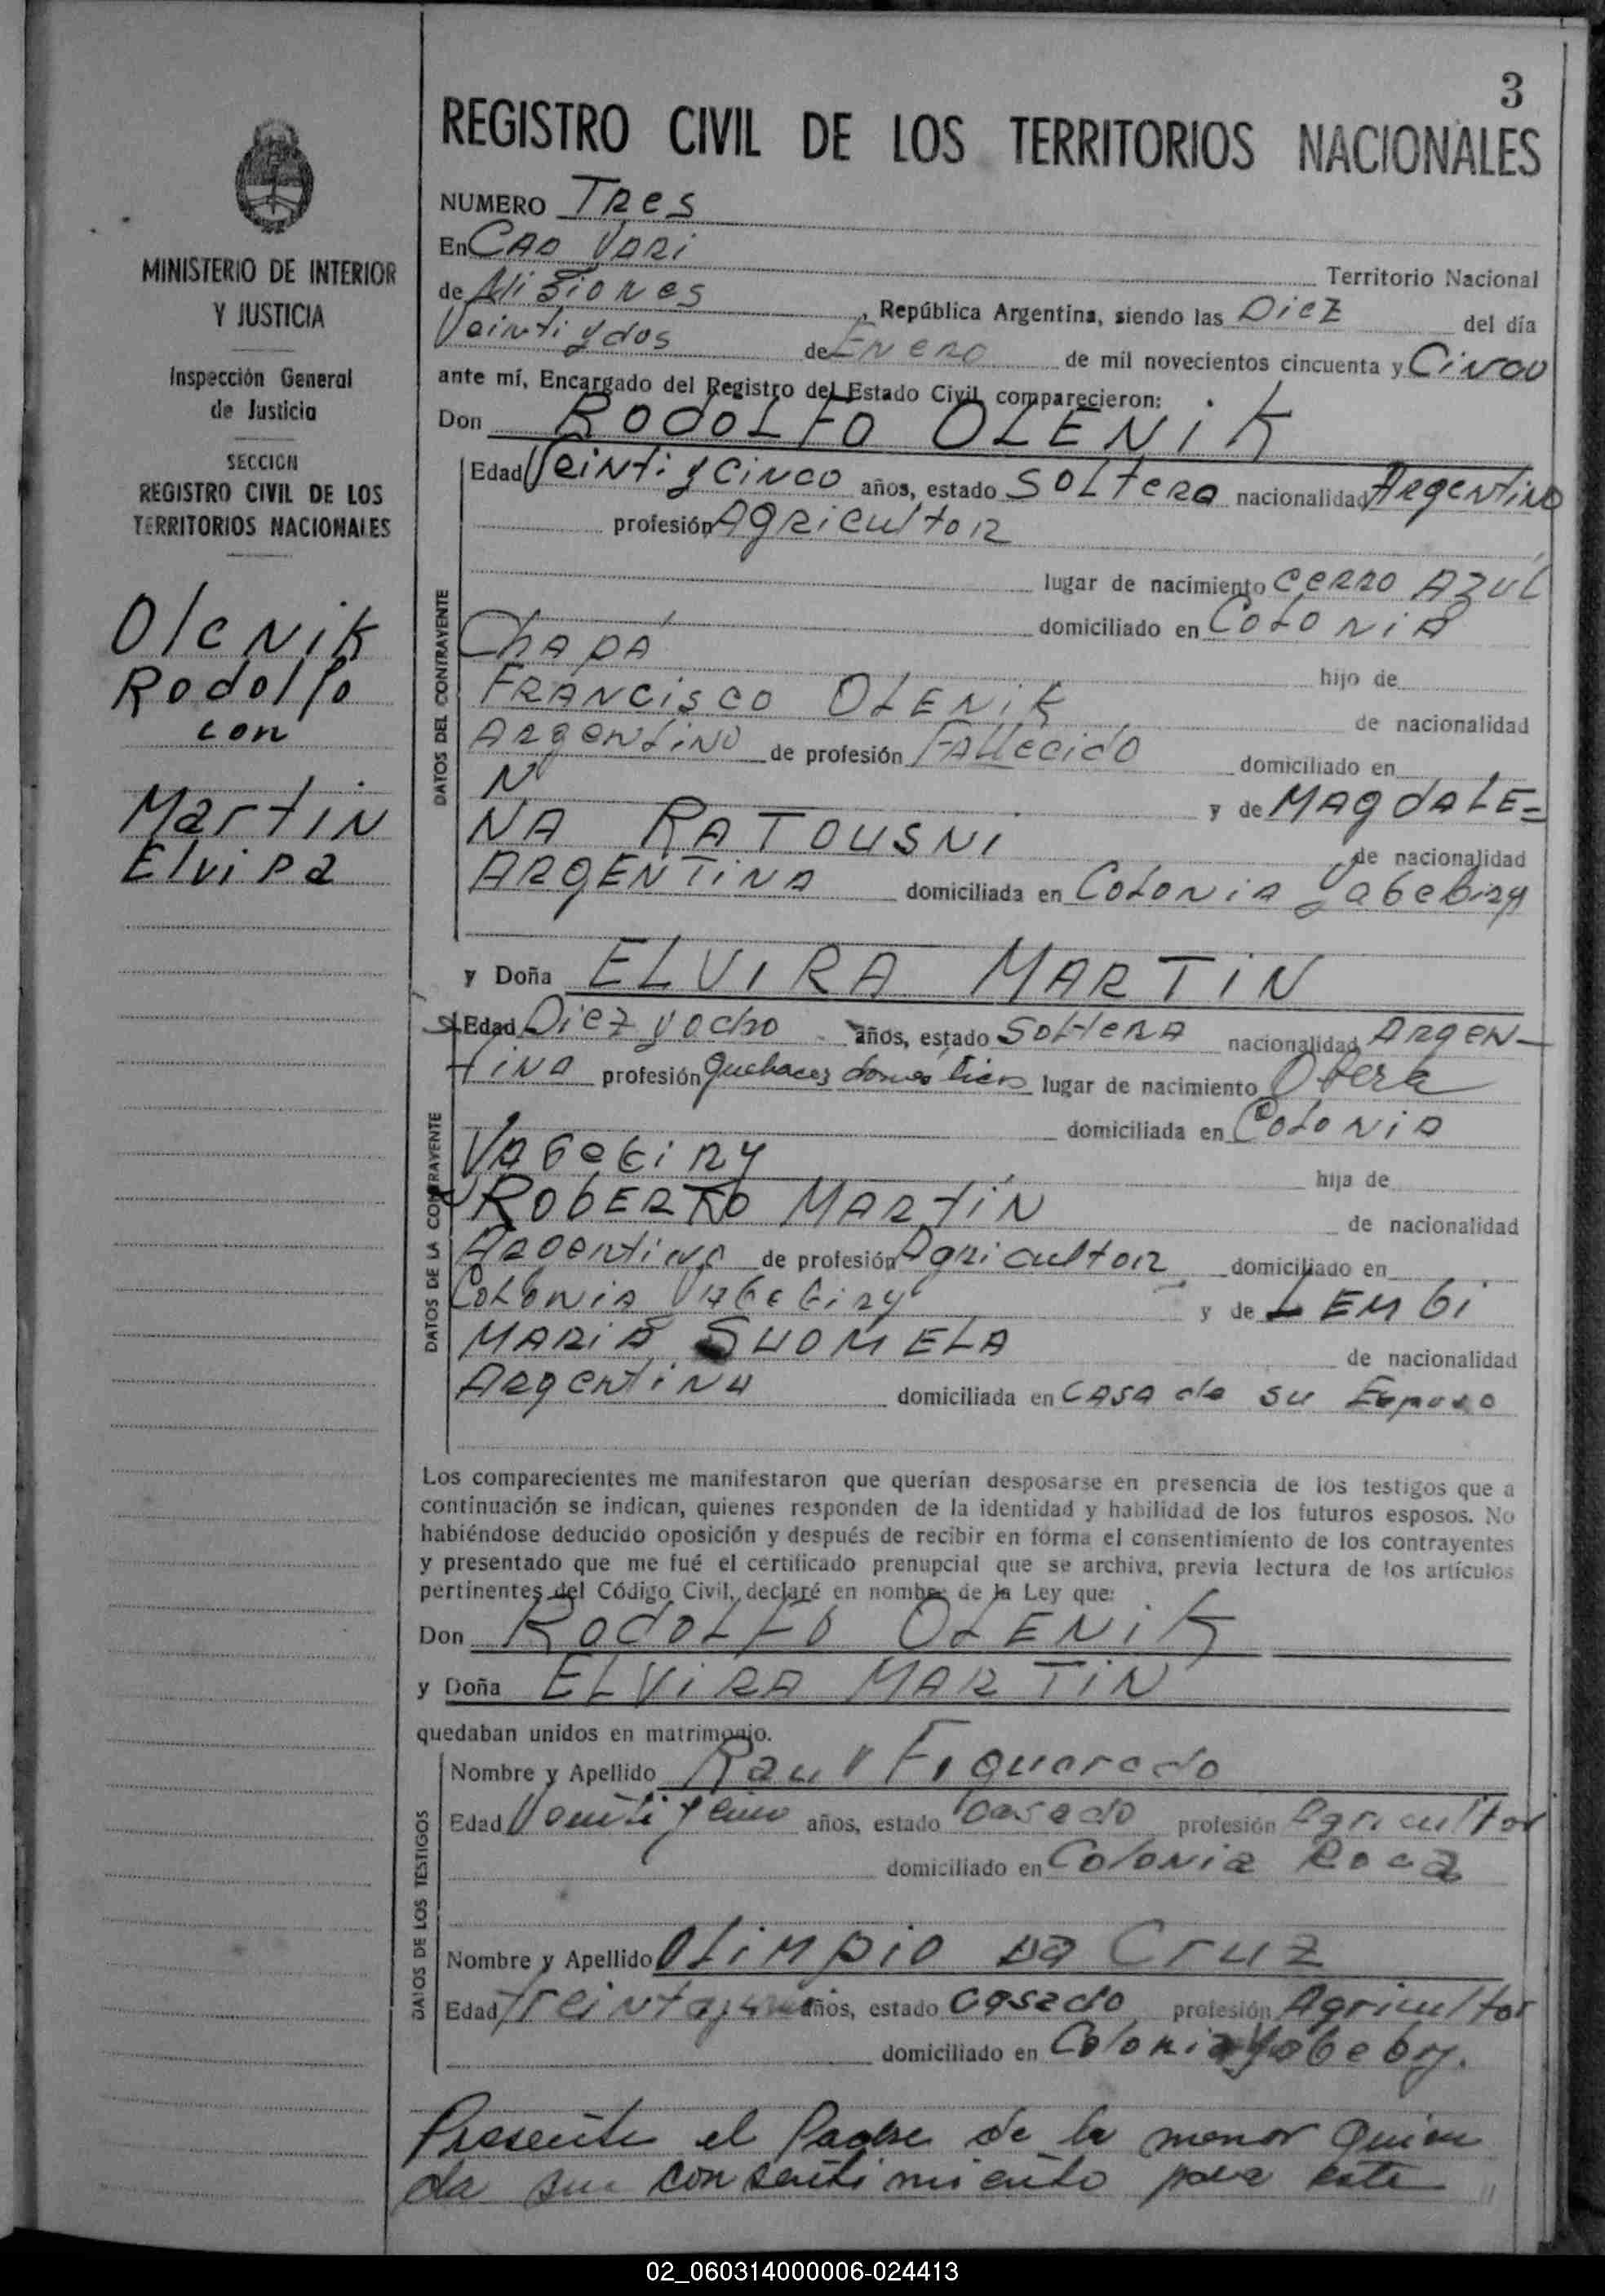 3
REGISTRO CIVIL DE LOS TERRITORIOS NACIONALES
MINISTERIO DE INTERIOR
Y JUSTICIA
Inspección General
de Justicia
SECCION
REGISTRO CIVIL DE LOS
TERRITORIOS NACIONALES
Olenik
Rodolfo
con
Martin
Elvira
NUMERO Tres
En Cao Yari
Territorio Nacional
de Misiones, República Argentina, siendo las Diez del día
Veinti y dos de Enero de mil novecientos cincuenta y Cinco
ante mí, Encargado del Registro del Estado Civil, comparecieron:
Don RODOLFO OLENIK
DATOS DEL CONTRAYENTE
Edad Veinti y cinco años, estado SOLtero nacionalidad Argentino
profesión Agricultor
lugar de nacimiento Cerro AZUL
domiciliado en Colonia
Chapá
hijo de
FRANCisco OLENiK
de nacionalidad
Argentino de profesión FALLecido domiciliado en
N
y de MAgdALE=
NA RATOUSNI
de nacionalidad
ARGENTINA domiciliada en Colonia Yabebiry
y Doña ELVIRA MARTIN
DATOS DE LA CONTRAYENTE
Edad Diez y ocho años, estado Soltera nacionalidad Argen-
tina profesión Quehaceres domesticos lugar de nacimiento Obera
domiciliada en Colonia
Yabebiry
hija de
ROBERTO MARTIN
de nacionalidad
Argentino de profesión Agricultor domiciliado en
Colonia Yabebiry
y de LEMbi
MARIA SUOMELA
de nacionalidad
Argentina domiciliada en CASA de su Esposo
Los comparecientes me manifestaron que querían desposarse en presencia de los testigos que a
continuación se indican, quienes responden de la identidad y habilidad de los futuros esposos. No
habiéndose deducido oposición y después de recibir en forma el consentimiento de los contrayentes
y presentado que me fué el certificado prenupcial que se archiva, previa lectura de los artículos
pertinentes del Código Civil, declaré en nombre de la Ley que:
Don RODOLFO OLENIK
y Doña ELVIRA MARTIN
quedaban unidos en matrimonio.
DATOS DE LOS TESTIGOS
Nombre y Apellido Raul Figueredo
Edad años, estado Casado profesión Agricultor
domiciliado en Colonia Roca
Nombre y Apellido OLimpio Da Cruz
Edad Treinta años, estado Casado profesión Agricultor
domiciliado en Colonia Yabebry.
Presente el Padre de la menor quien
da su consentimiento para este
02_060314000006-024413